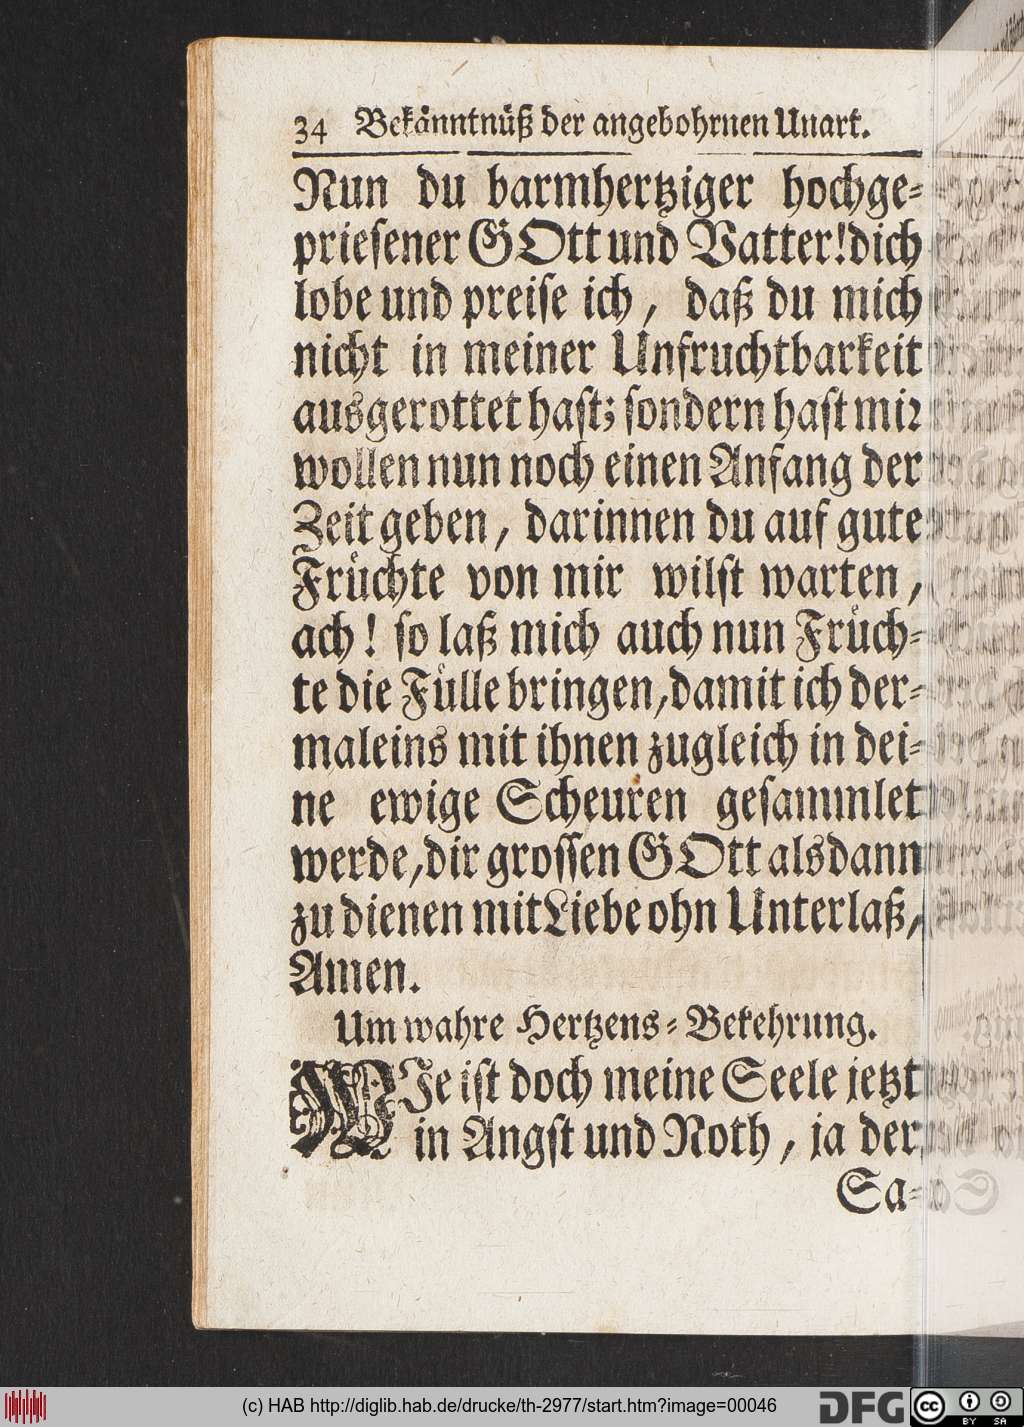 34 Bekänntnüß der angebohrnen Unart.
Nun du barmhertziger hochge-
priesener GOtt und Vatter! dich
lobe und preise ich, daß du mich
nicht in meiner Unfruchtbarkeit
ausgerottet hast; sondern hast mir
wollen nun noch einen Anfang der
Zeit geben, darinnen du auf gute
Früchte von mir wilst warten,
ach! so laß mich auch nun Früch-
te die Fülle bringen, damit ich der-
maleins mit ihnen zugleich in dei-
ne ewige Scheuren gesammlet
werde, dir grossen GOtt alsdann
zu dienen mit Liebe ohn Unterlaß,
Amen.
Um wahre Hertzens-Bekehrung.
WJe ist doch meine Seele jetzt
in Angst und Noth, ja der
Sa-
(c) HAB http://diglib.hab.de/drucke/th-2977/start.htm?image=00046
DFG
cc BY SA